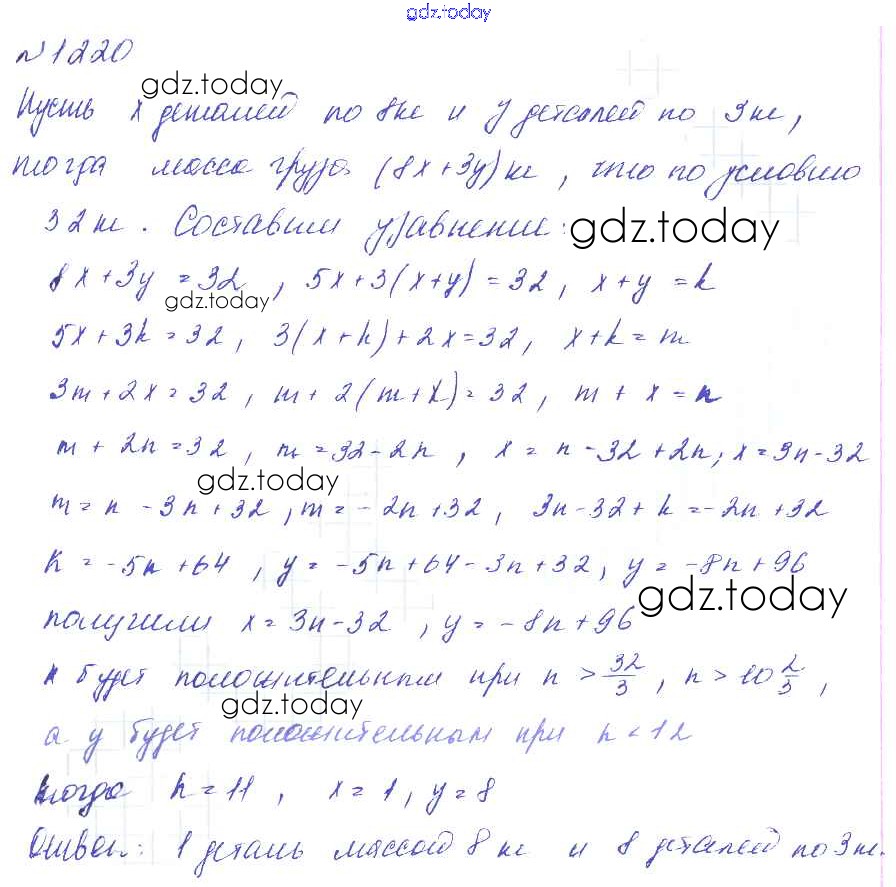 gdz.today
№1220
gdz.today
Пусть x деталей по 8кг и y деталей по 3кг,
тогда масса груза (8x+3y)кг, что по условию
32кг. Составим уравнение:
gdz.today
8x+3y=32, 5x+3(x+y)=32, x+y=k
gdz.today
5x+3k=32, 3(x+k)+2x=32, x+k=m
3m+2x=32, m+2(m+x)=32, m+x=n
m+2n=32, m=32-2n, x=n-32+2n; x=3n-32
gdz.today
m=n-3n+32, m=-2n+32, 3n-32+k=-2n+32
k=-5n+64, y=-5n+64-3n+32, y=-8n+96
gdz.today
получили x=3n-32, y=-8n+96
x будет положительным при n>32/3, n>10 2/3,
gdz.today
а y будет положительным при n<12
тогда n=11, x=1, y=8
Ответ: 1 деталь массой 8кг и 8 деталей по 3кг.